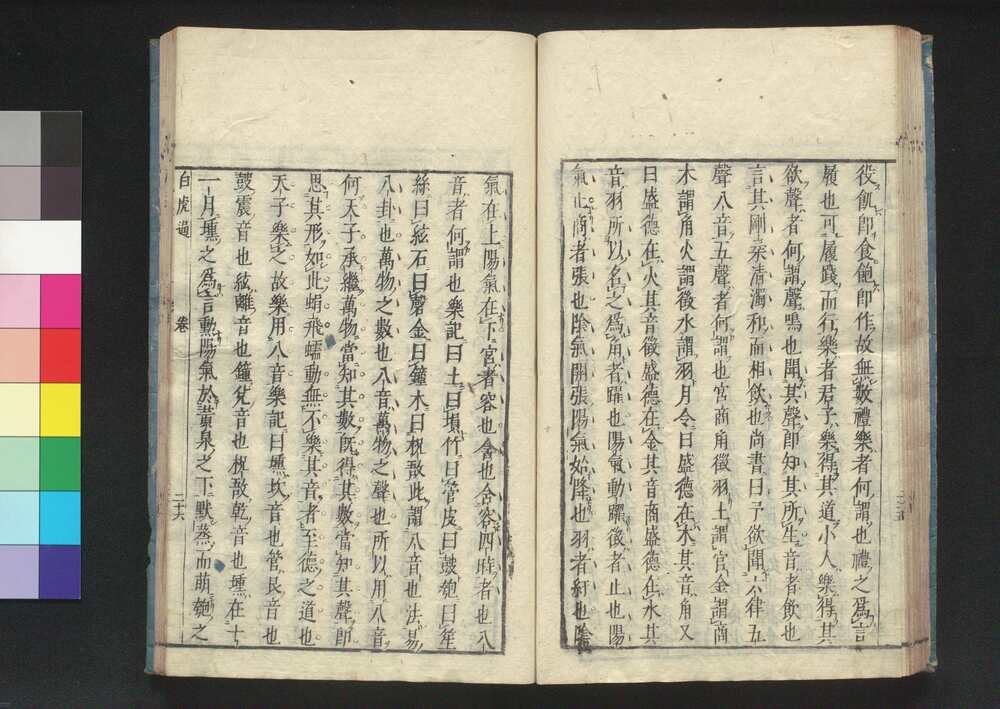 役飢即食飽即作故無數禮樂者何謂也禮之為言
履也可履踐而行樂者君子樂得其道小人樂得其
欲聲者何謂聲鳴也聞其聲即知其所生音者飲也
言其剛柔清濁和而相飲也尚書曰予欲聞六律五
聲八音五聲者何謂也宮商角徵羽土謂宮金謂商
木謂角火謂徵水謂羽月令曰盛德在木其音角又
曰盛德在火其音徵盛德在金其音商盛德在水其
音羽所以名之為角者躍也陽氣動躍徵者止也陽
氣止商者張也陰氣開張陽氣始降也羽者紆也陰
氣在上陽氣在下宮者容也含也含容四時者也八
音者何謂也樂記曰土曰塤竹曰管皮曰鼓匏曰笙
絲曰絃石曰磬金曰鐘木曰柷敔此謂八音也法易
八卦也萬物之數也八音萬物之聲也所以用八音
何天子承繼萬物當知其數既得其數當知其聲即
思其形如此蜎飛蠕動無不樂其音者至德之道也
天子樂之故樂用八音樂記曰壎坎音也管艮音也
鼓震音也絃離音也鐘兌音也柷敔乾音也壎在十
一月壎之為言勳陽氣於黃泉之下默蒸而萌匏之
白虎通
卷
二十六